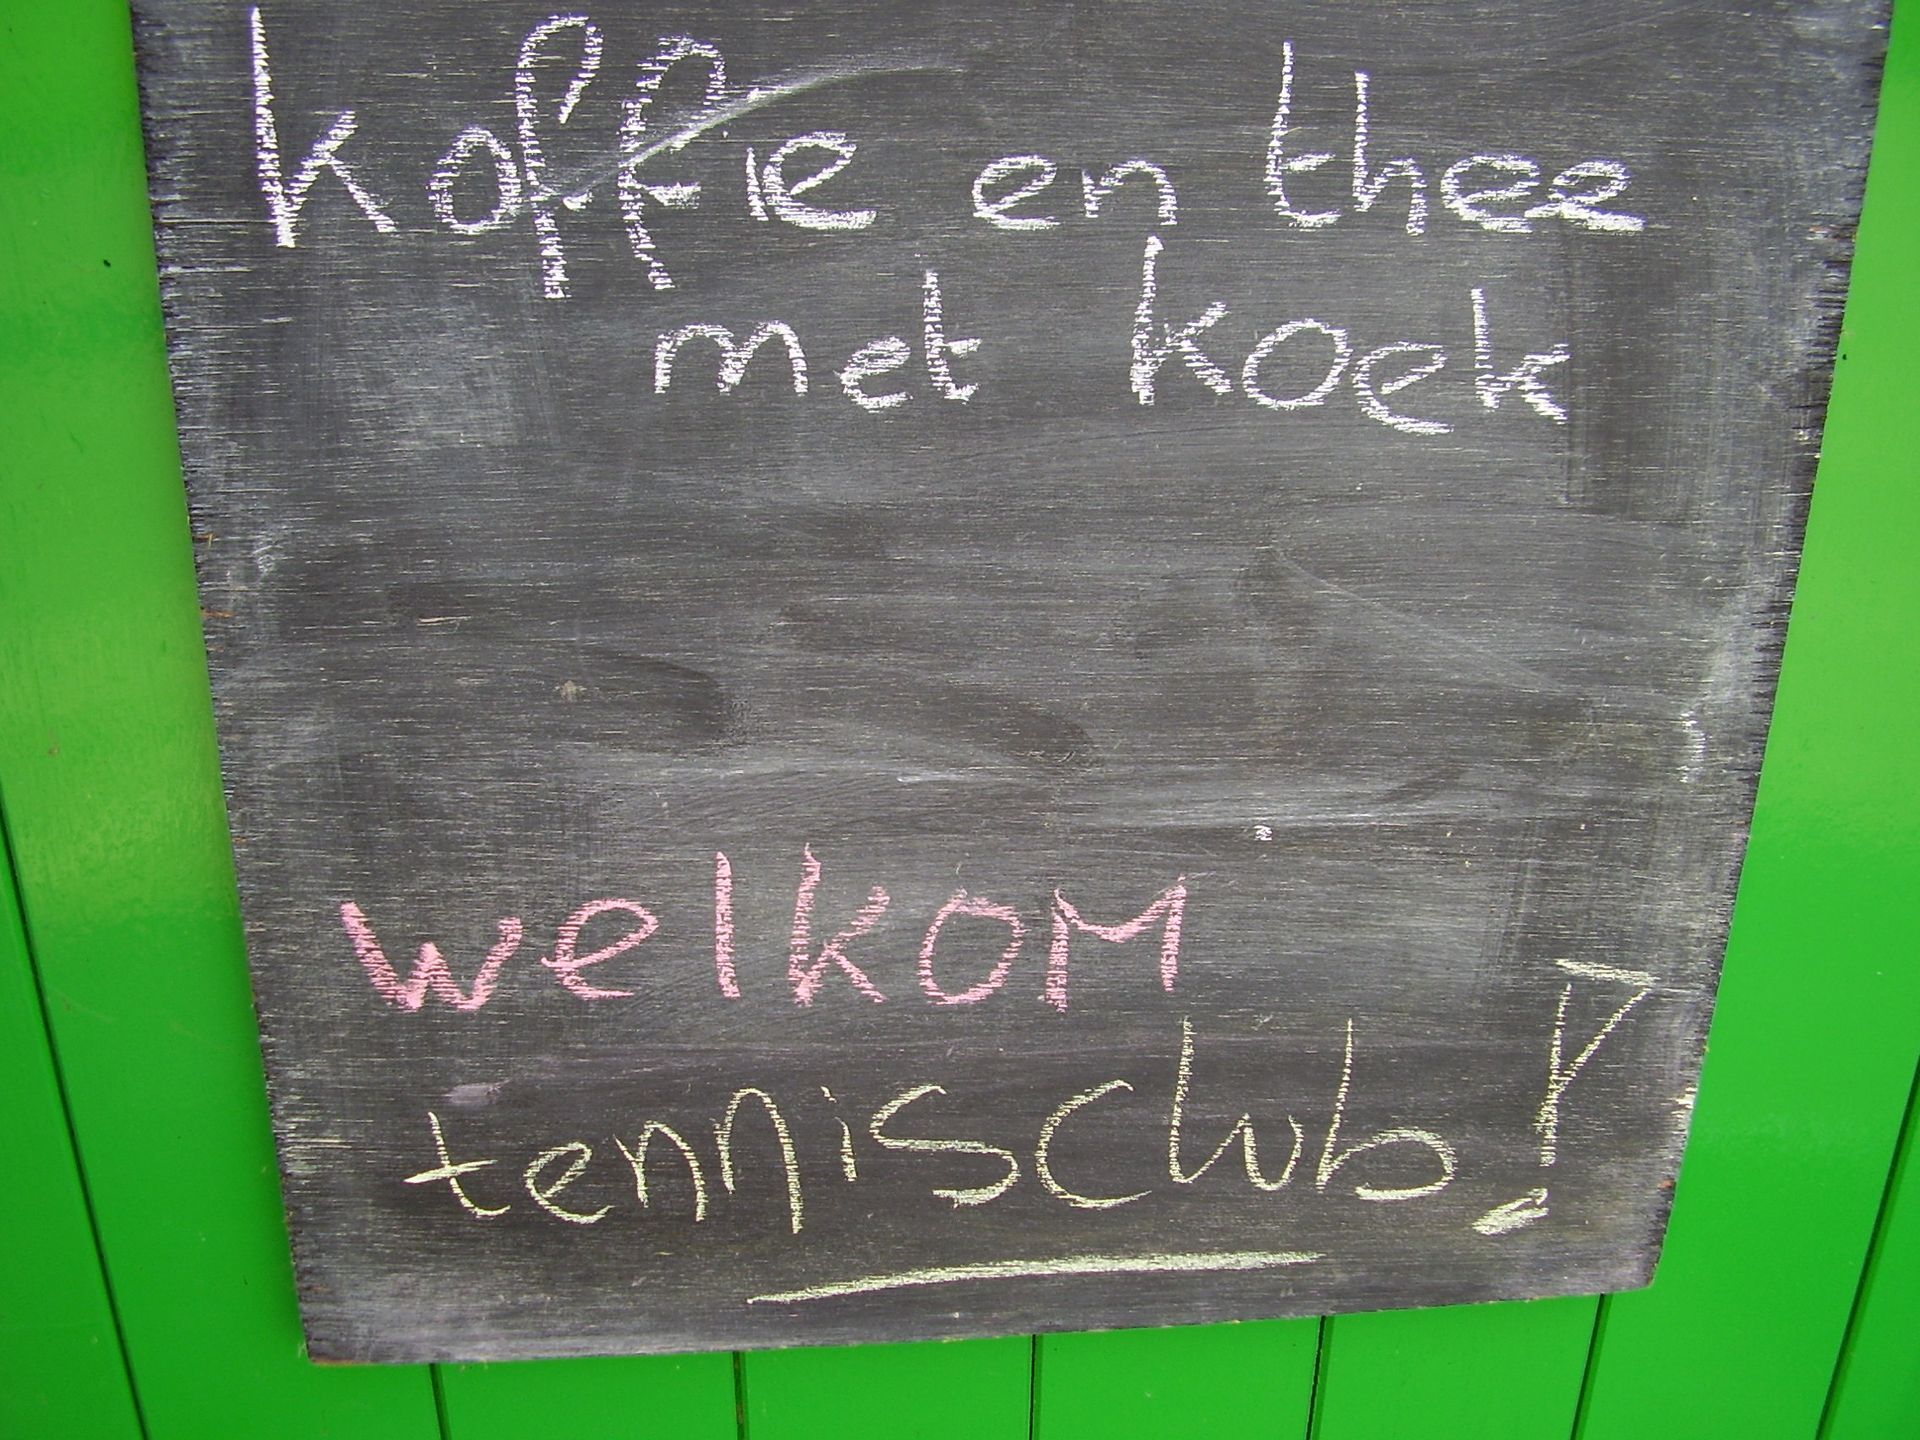 koffie en thee
met koek
welkom
tennisclub!